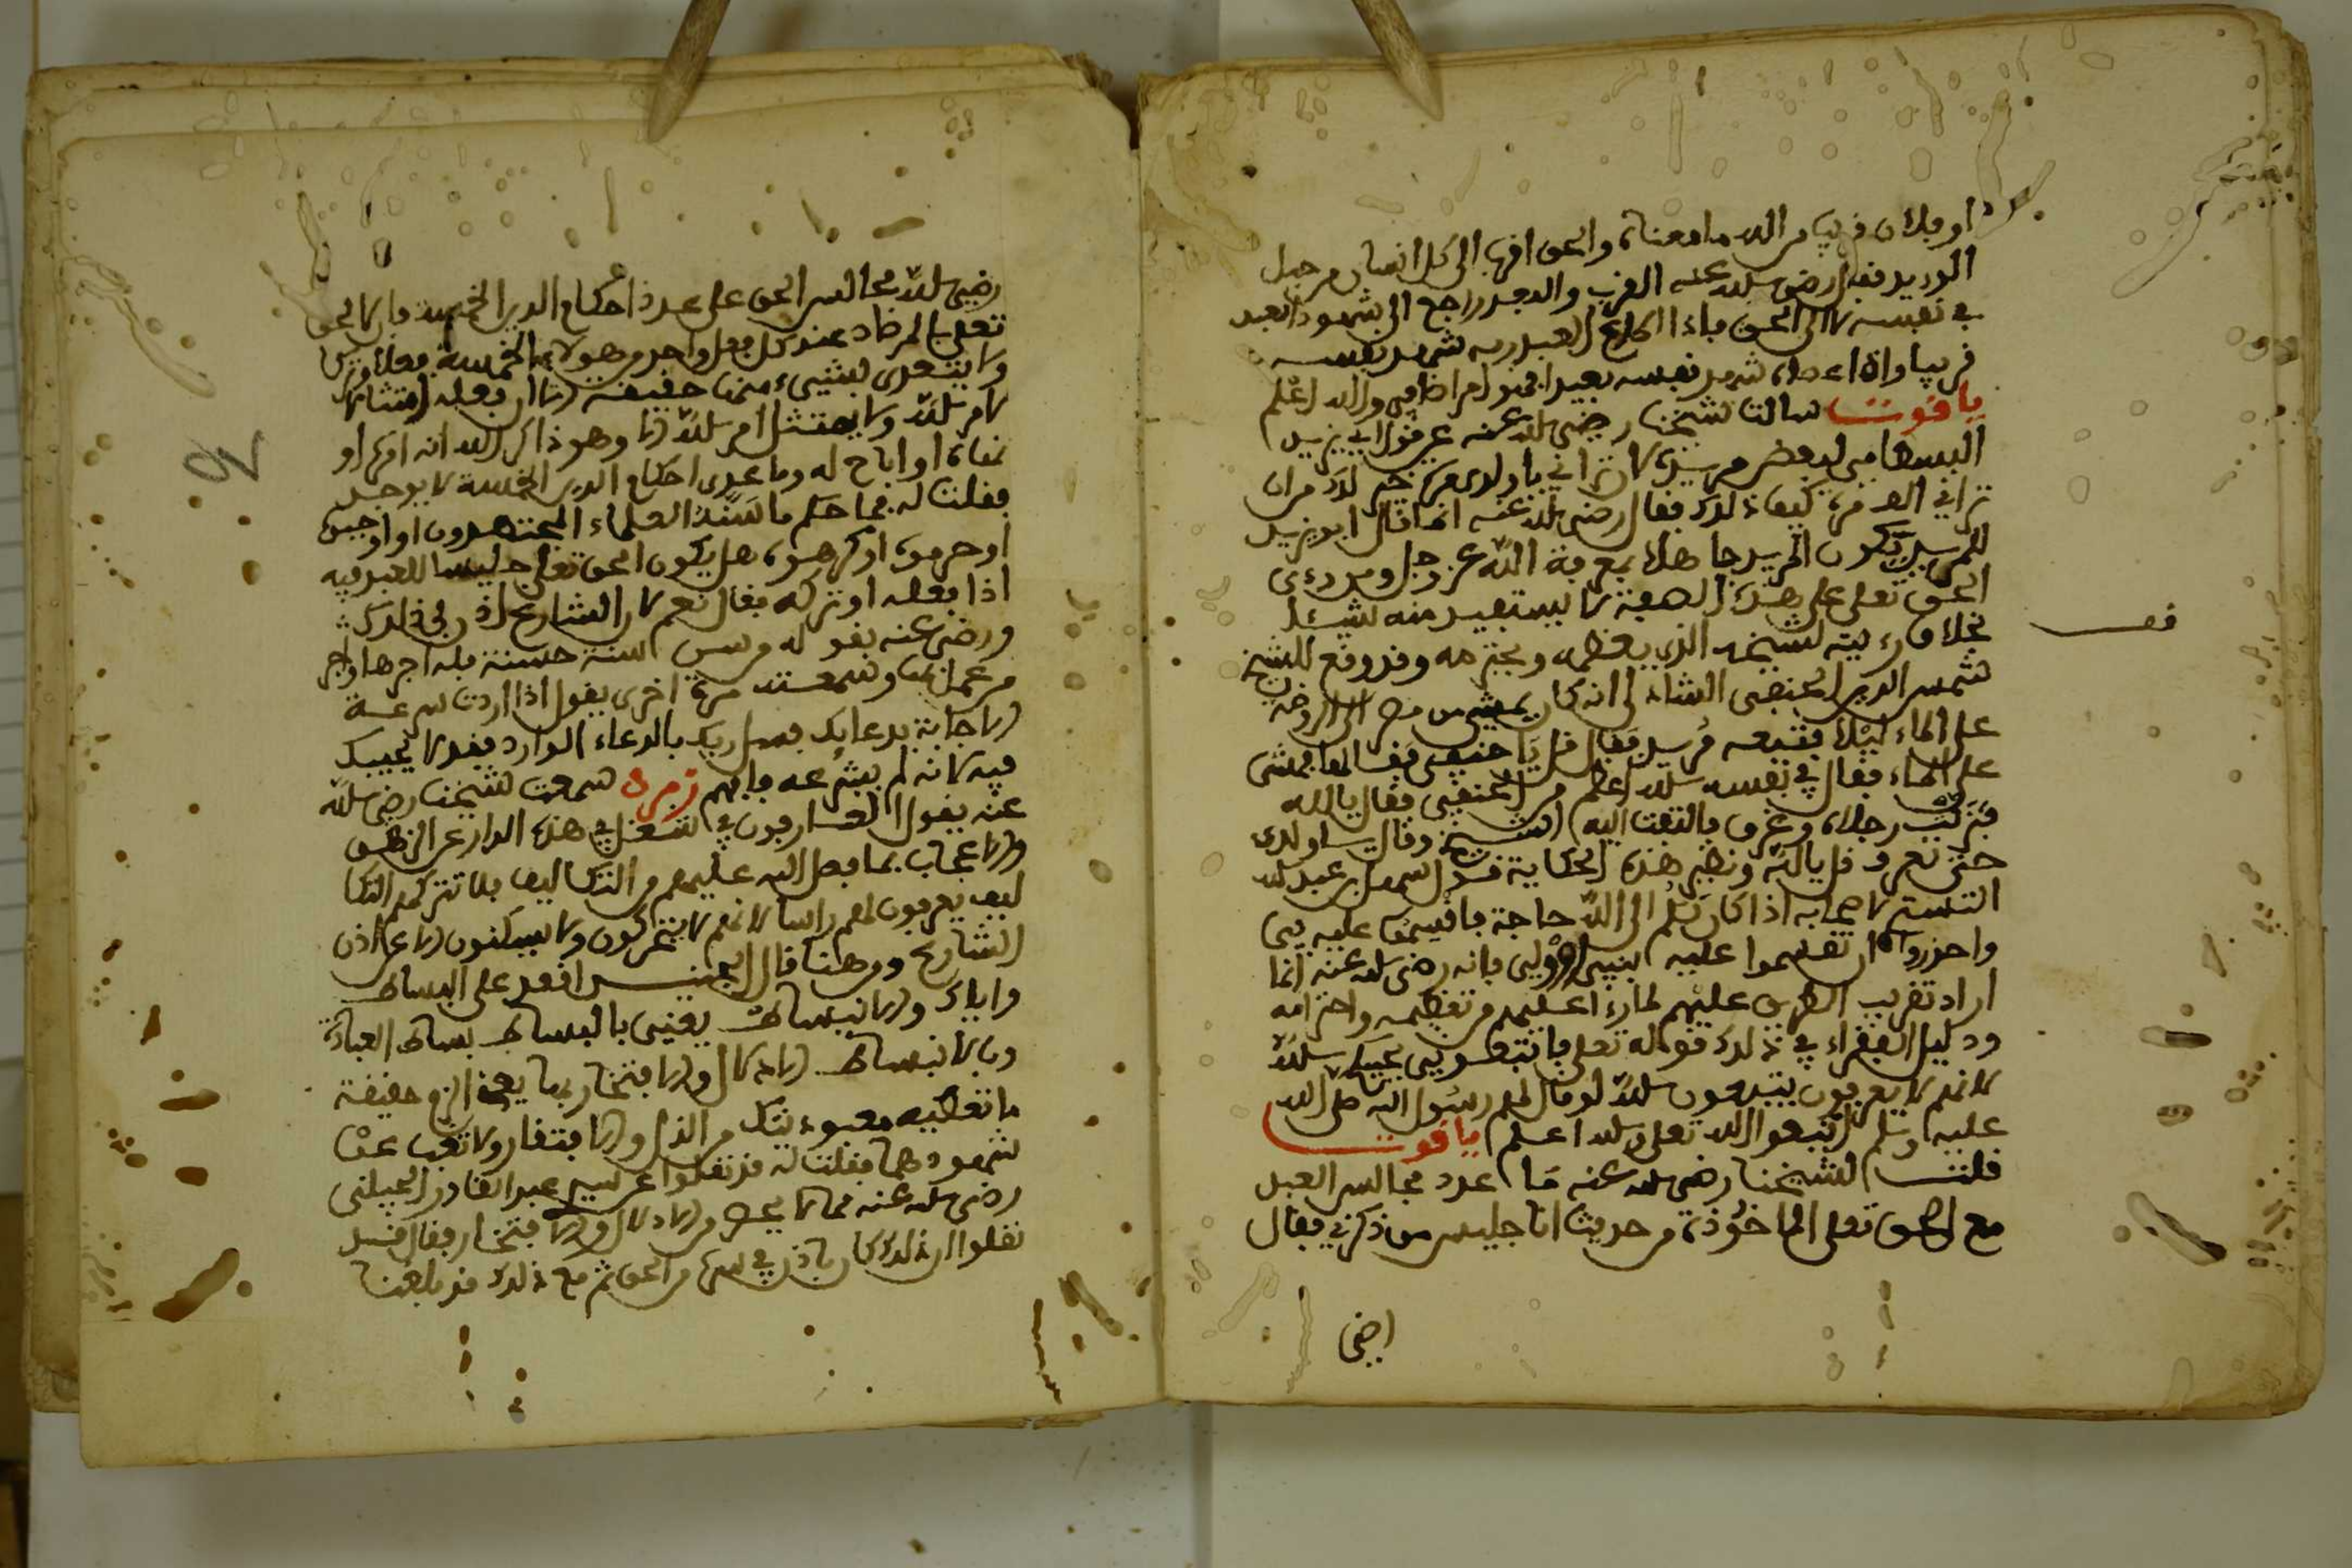 او فلان قريب من الله ما معناه والحق اقرب الى كل انسان من حبل
الوريد فقال رضي الله عنه القرب والبعد راجع الى شهود العبد
في نفسه لا الى الحق فاذا اطاع العبد ربه شهد نفسه
قريبا واذا عصاه شهد نفسه بعيدا فهو امر اضافي والله اعلم
ياقوت سالت شيخنا رضي الله عنه عن قول ابي يزيد
البسطامي لبعض مريديه لان تراني ياولدي مرة خير لك من ان
ترى الله الف مرة كيف ذلك فقال رضي الله عنه انما قال ابو يزيد
للمريد لكون المريد جاهلا بمعرفة الله عز وجل ومن رءى
الحق تعلى على هذه الصفة لا يستفيد منه شيئا
بخلاف رءيته لشيخه الذي يعظمه ويحترمه وقد وقع للشيخ
شمس الدين الحنفي الشاذلي انه كان يمشي من مصر الى الروضة
على الماء ليلا فتبعه مريد فقال قل يا حنفي فقالها فمشى
على الماء فقال في نفسه الله اعظم من الحنفي فقال يا الله
فنزلت رجلاه وغرق فالتفت اليه الشيخ وقال يا ولدي
حتى تعرف قل يا الله ونظير هذه الحكاية قول سهل بن عبد الله
التستري لاصحابه اذا كان لكم الى الله حاجة فاقسموا عليه بي
واحذروا ان تقسموا عليه بنبي او ولي فانه رضي الله عنه انما
اراد تقريب الطريق عليهم لما رءا عليهم من تعظيمه واحترامه
ودليل الفقراء في ذلك قوله تعلى فاتبعوني يحببكم الله
لانهم لا يعرفون يتبعون الله لو قال لهم رسول الله صلى الله
عليه وسلم اتبعوا الله تعلى والله اعلم ياقوت
قلت لشيخنا رضي الله عنه ما عدد مجالس العبد
مع الحق تعلى الماخوذة من حديث انا جليس من ذكرني فقال
رضي الله مجالس الحق على عدد احكام الدين الخمسة فان الحق
تعلى بالمرصاد عند كل فعل واحد من هولاء الخمسة فعلا وتركا
ولا يتعدى لشيء منها حقيقة الا ان فعله امتثالا
لامر الله ولا يمتثل امر الله الا وهو ذاكر الله انه امره او
نهاه او اباح له وما عدى احكام الدين الخمسة لا يوجد
فقلت له فما حكم ما سنه العلماء المجتهدون او اوجبوه
او حرموه او كرهوه هل يكون الحق تعلى جليسا للعبد فيه
اذا فعله او تركه فقال نعم لان الشارع اذن في ذلك
ورضي عنه بقوله من سن سنة حسنة فله اجرها واجر
من عمل بها وسمعته مرة اخرى يقول اذا اردت سرعة
الاجابة بدعايك فسل ربك بالدعاء الوارد فقد لا يجيبك
فيه لانه لم يشرعه فافهم زمردة سمعت شيخنا رضي الله
عنه يقول العارفون في شغل في هذه الدار عن الزهو
والاعجاب بما فصل الله عليهم من التكاليف فلا تتركهم التكا
ليف يعرفون لهم راسا لانهم لا يتحركون ولا يسكنون الا عن اذن
الشارع ومن هنا قال الجنيد اقعد على البساط
واياك والانبساط يعني بالبساط بساط العبادة
وبالانبساط الادلال والافتخار بما يعز الرق حقيقة
ما تعطيه معبوديتك من الذل والافتقار ولا تغب عن
شهودهما فقلت له قد نقلوا عن سيدي عبد القادر الجيلني
رضي الله عنه مما لا يحصر من الادلال والافتخار فقال قد
نقلوا ان ذلك كان باذن في سره من الحق ثم مع ذلك قد بلغنا
اضي